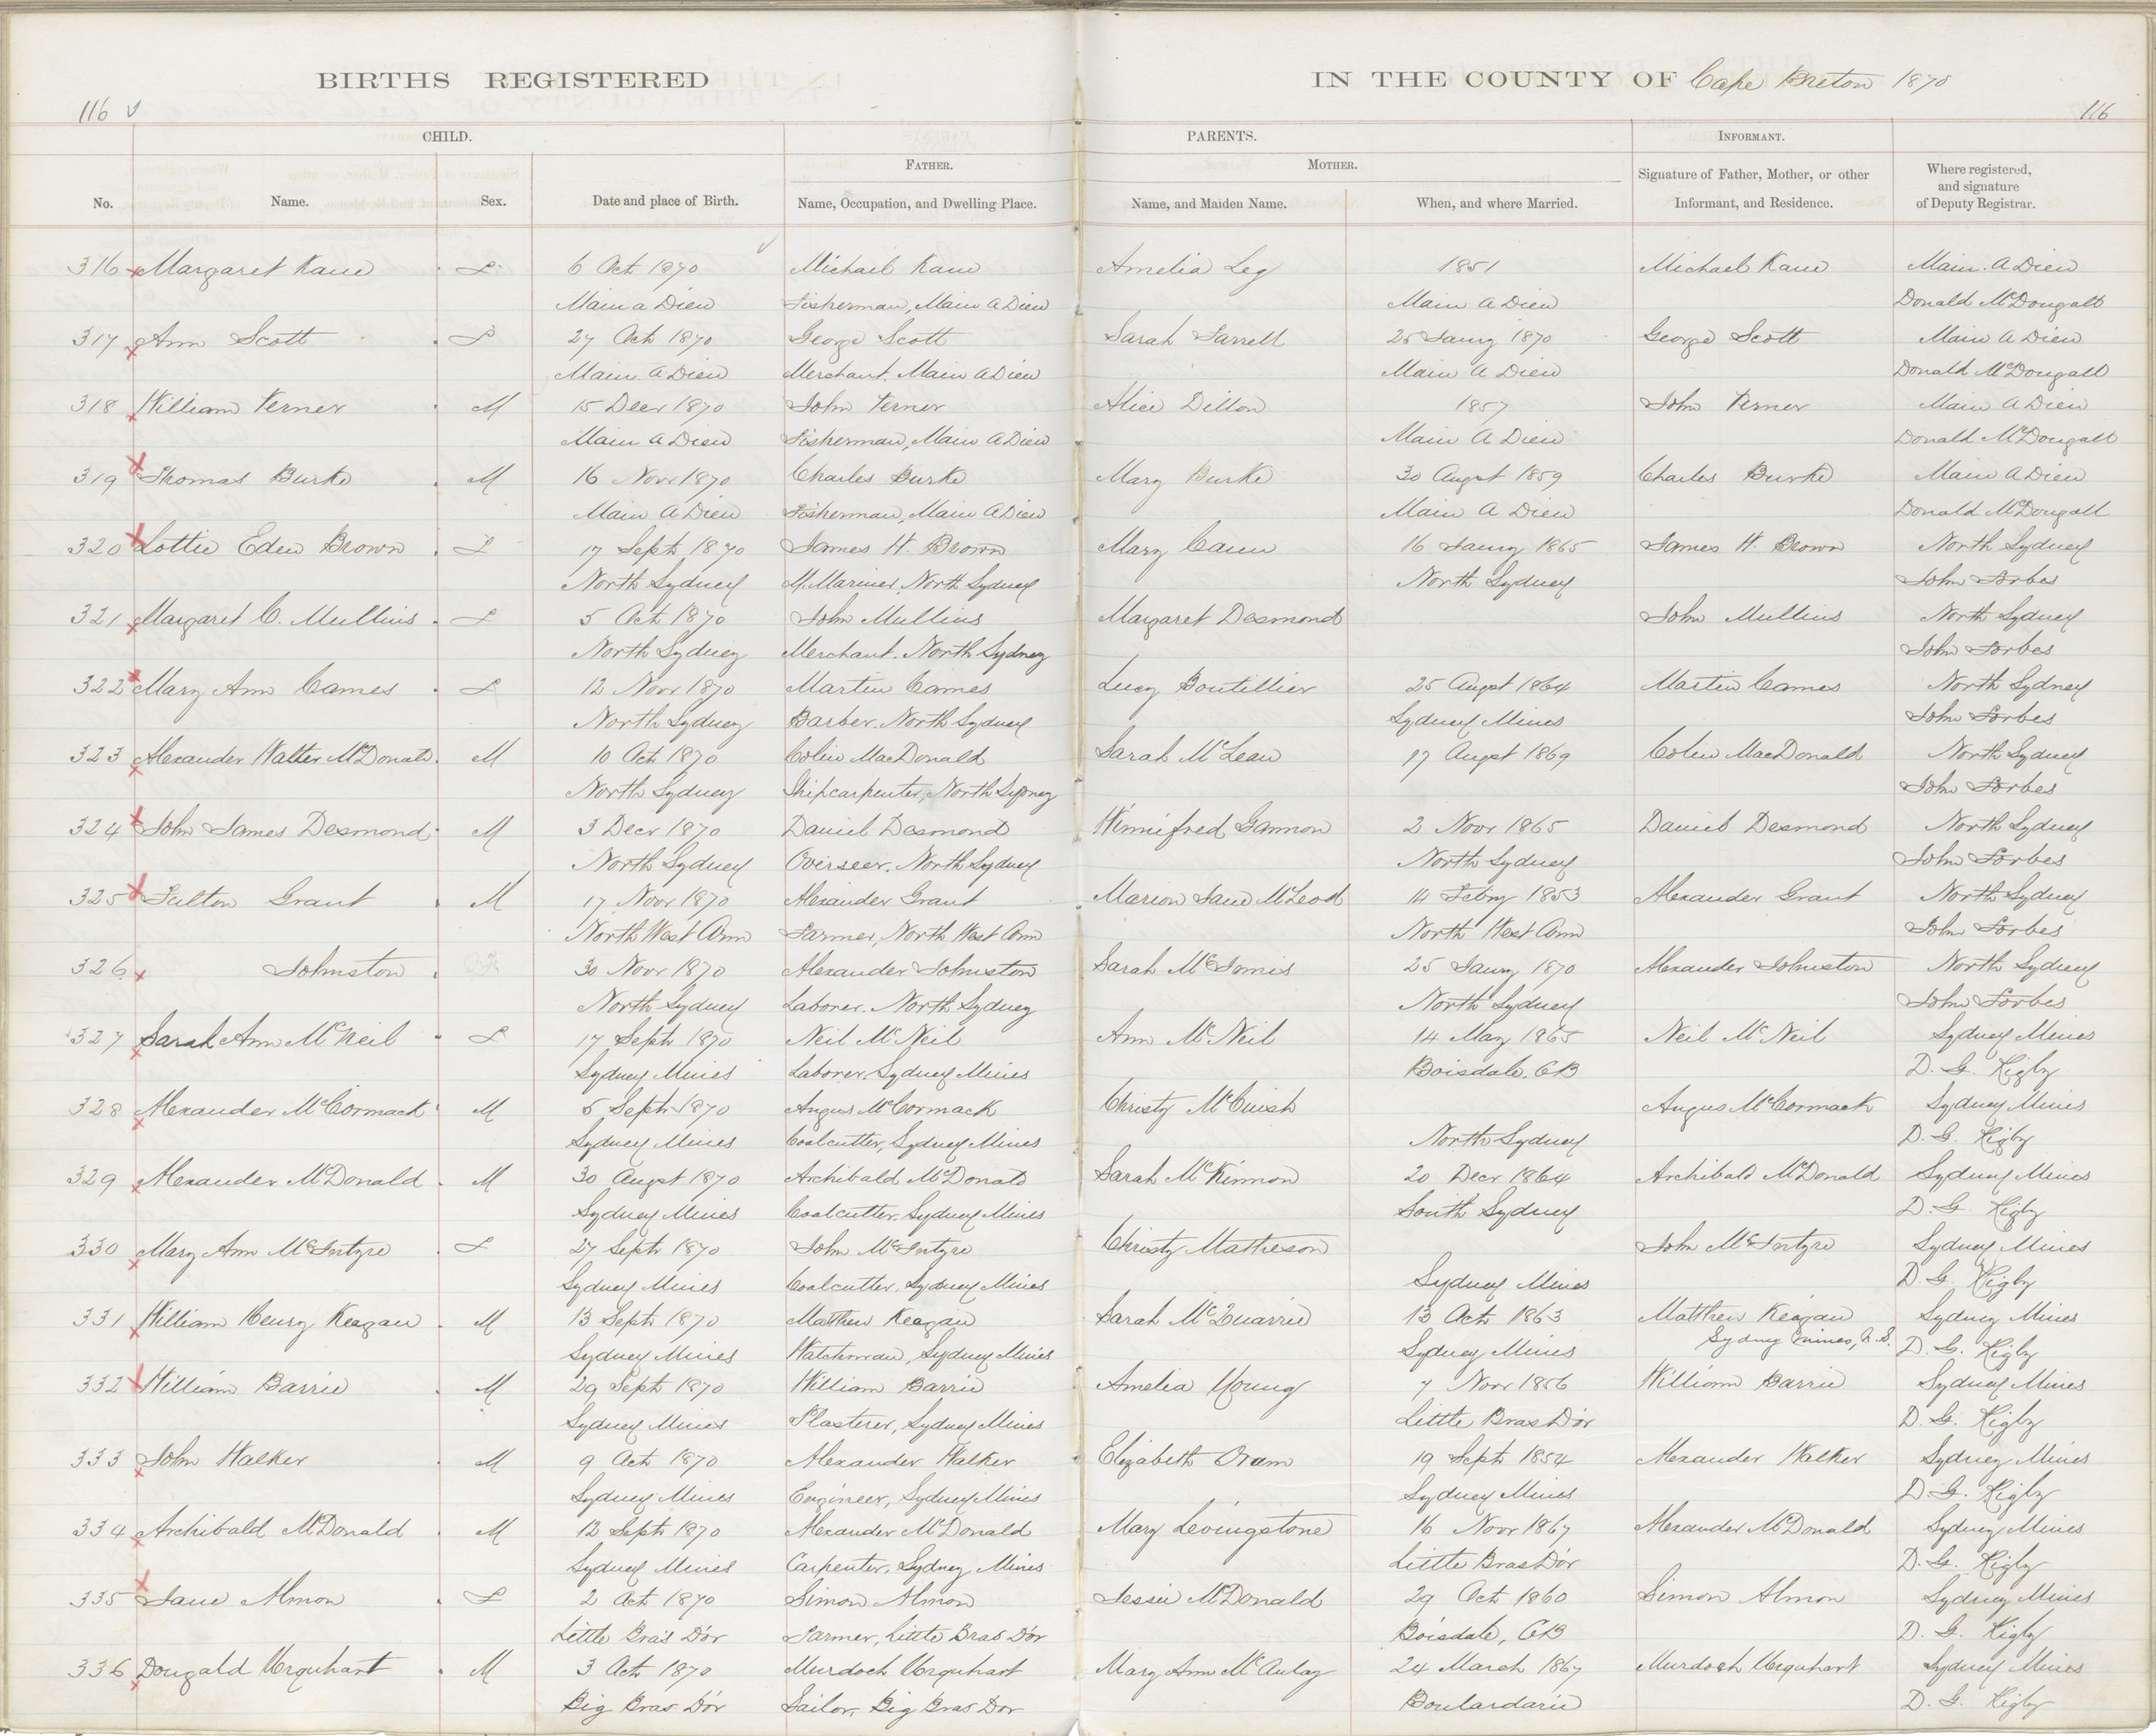 BIRTHS REGISTERED IN THE COUNTY OF Cape Breton 1870
116 116
CHILD. PARENTS. INFORMANT.
FATHER. MOTHER.
No. Name. Sex. Date and place of Birth. Name, Occupation, and Dwelling Place. Name, and Maiden Name. When, and where Married. Signature of Father, Mother, or other Informant, and Residence. Where registered, and signature of Deputy Registrar.
316 Margaret Kane F 6 Oct 1870 Michael Kane Amelia Leg 1851 Michael Kane Main A Dieu
Main a Dieu Fisherman, Main A Dieu Main A Dieu Donald McDougall
317 Ann Scott F 27 Oct 1870 George Scott Sarah Farrell 25 Jany 1870 George Scott Main A Dieu
Main A Dieu Merchant. Main A Dieu Main A Dieu Donald McDougall
318 William Ferner M 15 Decr 1870 John Ferner Alice Dillon 1857 John Ferner Main A Dieu
Main A Dieu Fisherman, Main A Dieu Main A Dieu Donald McDougall
319 Thomas Burke M 16 Novr 1870 Charles Burke Mary Burke 30 Augst 1859 Charles Burke Main A Dieu
Main A Dieu Fisherman, Main A Dieu Main A Dieu Donald McDougall
320 Lottie Eden Brown F 17 Sept 1870 James H. Brown Mary Cann 16 Jany 1865 James H. Brown North Sydney
North Sydney M. Mariner, North Sydney North Sydney John Forbes
321 Margaret C. Mullins F 5 Oct 1870 John Mullins Margaret Desmond John Mullins North Sydney
North Sydney Merchant. North Sydney John Forbes
322 Mary Ann Cames F 12 Novr 1870 Martin Cames Lucy Boutillier 25 Augst 1864 Martin Cames North Sydney
North Sydney Barber. North Sydney Sydney Mines John Forbes
323 Alexander Walter McDonald M 10 Oct 1870 Colin MacDonald Sarah McLean 17 Augst 1869 Colin MacDonald North Sydney
North Sydney Shipcarpenter, North Sydney John Forbes
324 John James Desmond M 3 Decr 1870 Daniel Desmond Winnifred Gannon 2 Novr 1865 Daniel Desmond North Sydney
North Sydney Overseer. North Sydney North Sydney John Forbes
325 Fulton Grant M 17 Novr 1870 Alexander Grant Marion Jane McLeod 14 Febry 1853 Alexander Grant North Sydney
North West Arm Farmer, North West Arm North West Arm John Forbes
326 Johnston 30 Novr 1870 Alexander Johnston Sarah McInnis 25 Jany 1870 Alexander Johnston North Sydney
North Sydney Laborer. North Sydney North Sydney John Forbes
327 Sarah Ann McNeil F 17 Sept 1870 Neil McNeil Ann McNeil 14 May 1865 Neil McNeil Sydney Mines
Sydney Mines Laborer, Sydney Mines Boisdale, CB D. G. Rigby
328 Alexander McCormack M 5 Sept 1870 Angus McCormack Christy McCuish Angus McCormack Sydney Mines
Sydney Mines Coalcutter, Sydney Mines North Sydney D. G. Rigby
329 Alexander McDonald M 30 Augst 1870 Archibald McDonald Sarah McKinnon 20 Decr 1864 Archibald McDonald Sydney Mines
Sydney Mines Coalcutter, Sydney Mines South Sydney D. G. Rigby
330 Mary Ann McIntyre F 27 Sept 1870 John McIntyre Christy Matheson John McIntyre Sydney Mines
Sydney Mines Coalcutter, Sydney Mines Sydney Mines D. G. Rigby
331 William Henry Keagan M 13 Sept 1870 Matthew Keagan Sarah McQuarrie 13 Oct 1863 Matthew Keagan Sydney Mines
Sydney Mines Watchman, Sydney Mines Sydney Mines Sydney Mines, N.S. D. G. Rigby
332 William Barrie M 29 Sept 1870 William Barrie Amelia Young 7 Novr 1856 William Barrie Sydney Mines
Sydney Mines Plasterer, Sydney Mines Little Bras D'or D. G. Rigby
333 John Walker M 9 Oct 1870 Alexander Walker Elizabeth Oram 19 Sept 1854 Alexander Walker Sydney Mines
Sydney Mines Engineer, Sydney Mines Sydney Mines D. G. Rigby
334 Archibald McDonald M 12 Sept 1870 Alexander McDonald Mary Levingstone 16 Novr 1867 Alexander McDonald Sydney Mines
Sydney Mines Carpenter, Sydney Mines Little Bras D'or D. G. Rigby
335 Jane Almon F 2 Oct 1870 Simon Almon Jessie McDonald 29 Oct 1860 Simon Almon Sydney Mines
Little Bras D'or Farmer, Little Bras D'or Boisdale, CB D. G. Rigby
336 Dougald Urquhart M 3 Oct 1870 Murdoch Urquhart Mary Ann McAulay 24 March 1867 Murdoch Urquhart Sydney Mines
Big Bras D'or Sailor, Big Bras Dor Boulardarie D. G. Rigby